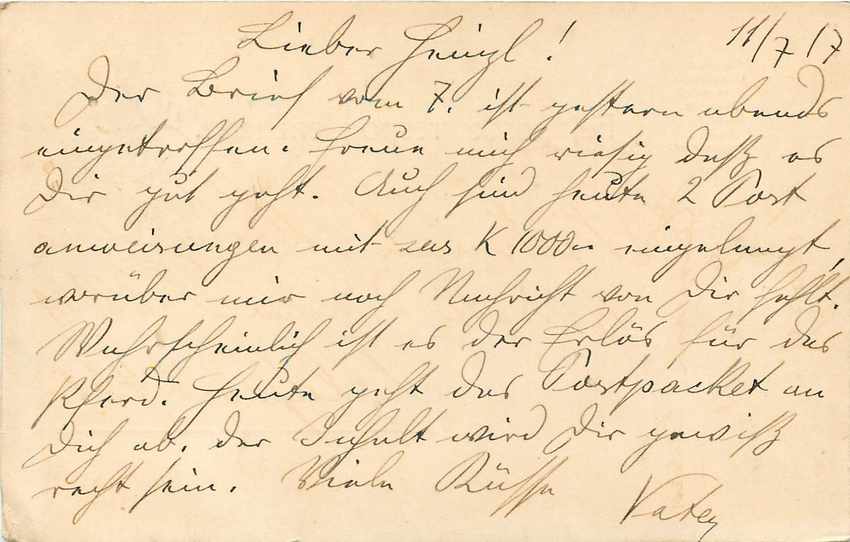 11/7 17
Lieber Heinzl!
Der Brief vom 7. ist gestern abends
eingetroffen. Freue mich riesig daß es
Dir gut geht. Auch sind heute 2 Post
anweisungen mit zus K 1000.- eingelangt,
worüber mir noch Nachricht von Dir fehlt.
Wahrscheinlich ist es der Erlös für das
Pferd. Heute geht das Postpacket an
Dich ab. der Inhalt wird Dir gewiß
recht sein. Viele Küsse Vater